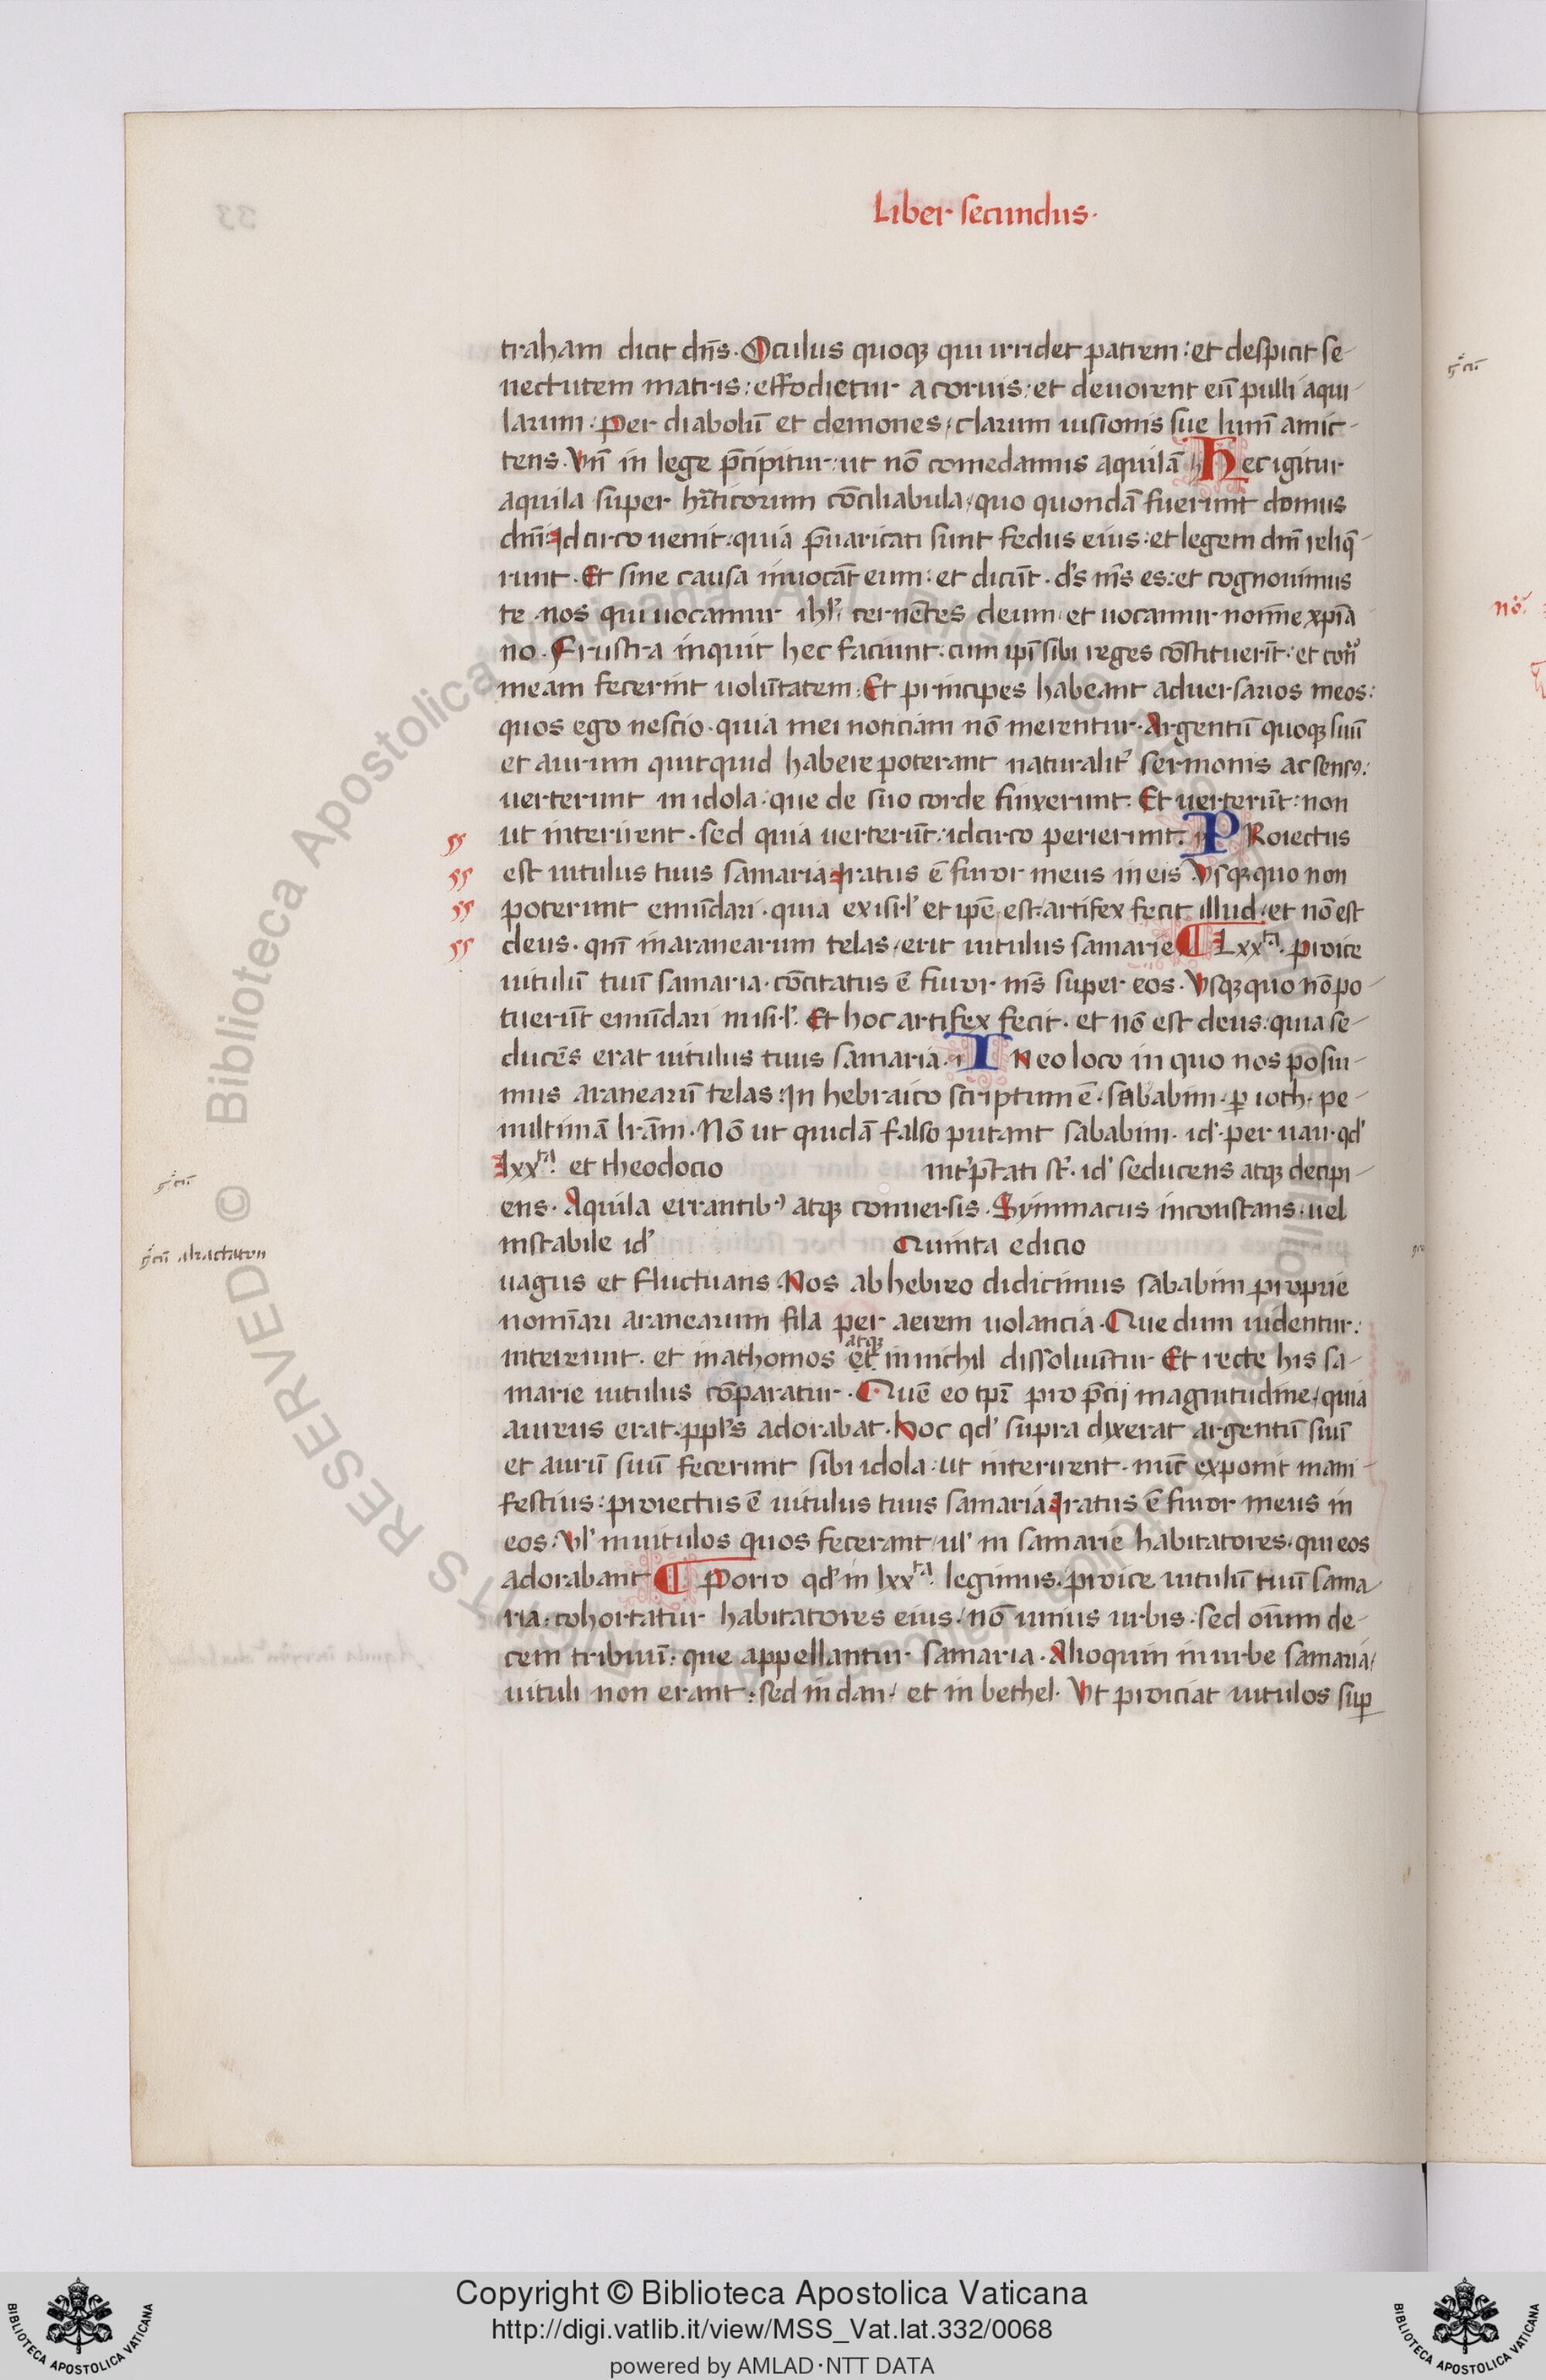 Liber secundus·
traham dicit dn̄s. Oculus quoqꝫ qui irridet patrem: et despicit se-
nectutem matris: effodietur a coruis: et deuorent eū pulli aqui-
larum. Per diabolū et demones, clarum uisionis sue lum̄ amit-
tens. Vn̄ in lege p̄cipitur: ut nō comedamus aquilā Hec igitur
aquila super hr̄ticorum cōciliabula, quo quondā fuerunt domus
dn̄i: Idcirco uenit: quia p̄uaricati sunt fedus eius: et legem dn̄i reliq̄-
runt. Et sine causa inuocāt eum: et dicūt. ds̓ nr̄s es: et cognouimus
te. nos qui uocamur ihl̓. cernētes deum, et uocamur nomīe xp̄ia
no. Frustra inquit hec faciunt: cum ip̄i sibi reges cōstituerīt: et cont̓
meam fecerint uolūtatem. Et principes habeant aduersarios meos:
quos ego nescio. quia mei noticiam nō merentur. Argentū quoqꝫ suū
et aurum quitquid habere poterant naturalit̓ sermonis ac sensꝯ:
uerterunt in idola. que de suo corde finxerunt. Et uerterūt: non
ut interirent. sed quia uerterūt: idcirco perierunt. PRoiectus
est uitulus tuus samaria Iratus ē furor meus in eis Vsqꝫ quo non
poterunt emūdari. quia ex isrl̓ et ip̄e est, artifex fecit illud, et nō est
deus. qm̄ in aranearum telas, erit uitulus samarie ¶ Lxxᵗᵃ. proice
uitulū tuū samaria. cōcitatus ē furor m̄s super eos. Vsqꝫ quo nō po-
tuerūt emūdari in isrl̓. Et hoc artifex fecit. et nō est deus: quia se-
ducēs erat uitulus tuus samaria. IN eo loco in quo nos posui-
mus aranearū telas: In hebraico scriptum ē. sababim. ꝑ ioth. pe-
nultimā lr̄am. Nō ut quidā falso putant sababim. id̓. per uau. qd̓
Lxxᵗᵃ. et theodocio int̓p̄tati st̓. id̓ seducens atqꝫ decipi-
ens. Aquila errantibꝯ atqꝫ conuersis. Symmacus inconstans. uel
instabile id̓ Quinta edicio
uagus et fluctuans. Nos ab hebreo didicimus sababim proprie
nomīari aranearum fila per aerem uolancia. Que dum uidentur:
intereunt. et in athomos et in nichil dissoluūtur Et recte his sa-
atqꝫ
marie uitulus cōparatur. Quē eo tp̄r pro p̄cij magnitudine, quia
aureus erat. ppl̓s adorabat. Hoc qd̓ supra dixerat argentū suū
et aurū suū fecerunt sibi idola: ut interirent. nūc exponit mani-
festius: proiectus ē uitulus tuus samaria Iratus ē furor meus in
eos: Vl̓ in uitulos quos fecerant, ul̓ in samarie habitatores, qui eos
adorabant ¶ Porro qd̓ in lxxᵗᵃ. legimus. proice uitulū tuū sama-
ria: cohortatur habitatores eius, nō unius urbis. sed om̄um de-
cem tribuū: que appellantur samaria. Alioquin in urbe samaria,
uituli non erant: sed in dan, et in bethel. Vt proiciat uitulos suꝑ
Copyright © Biblioteca Apostolica Vaticana
http://digi.vatlib.it/view/MSS_Vat.lat.332/0068
powered by AMLAD·NTT DATA
BIBLIOTECA APOSTOLICA VATICANA
BIBLIOTECA APOSTOLICA VATICANA